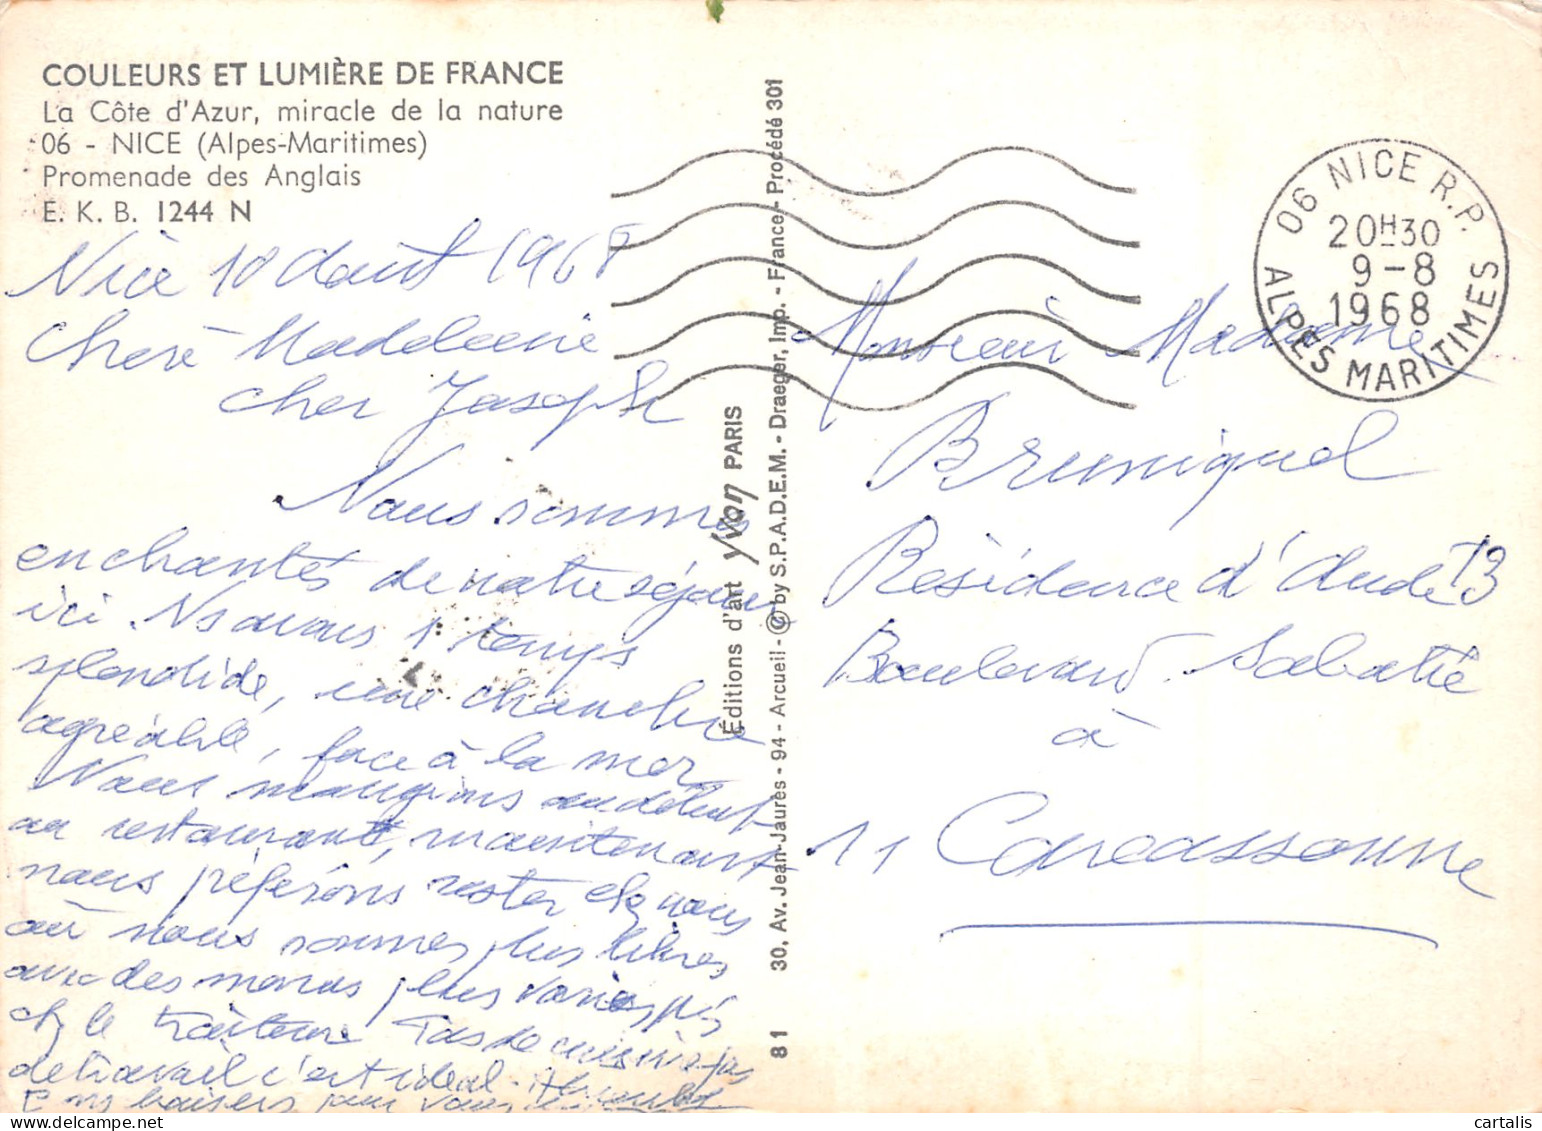 COULEURS ET LUMIÈRE DE FRANCE
La Côte d'Azur, miracle de la nature
06 - NICE (Alpes-Maritimes)
Promenade des Anglais
E. K. B. 1244 N
Nice 10 août 1968
Chere Madeleine
cher Joseph
Nous sommes
enchantés de notre séjour
ici. Ns avons 1 temps
splendide, une chambre
agréable, face à la mer
Nous mangions au début
au restaurant, maintenant
nous préférons rester chez nous
où nous sommes plus libres
avec des menus plus variés, pris
chz le traiteur Pas de cuisine, pas
de travail c'est idéal.
baisers pour vous
Éditions d'art Yvon PARIS
30, Av. Jean-Jaurès - 94 - Arcueil - © by S.P.A.D.E.M. - Draeger, Imp. - France - Procédé 301
81
06 NICE R.P.
20H30
9-8
1968
ALPES MARITIMES
Monsieur Madame
Bruniquel
Résidence d'Aude 13
Boulevard Sabatié
à
11 Carcassonne
cartalis